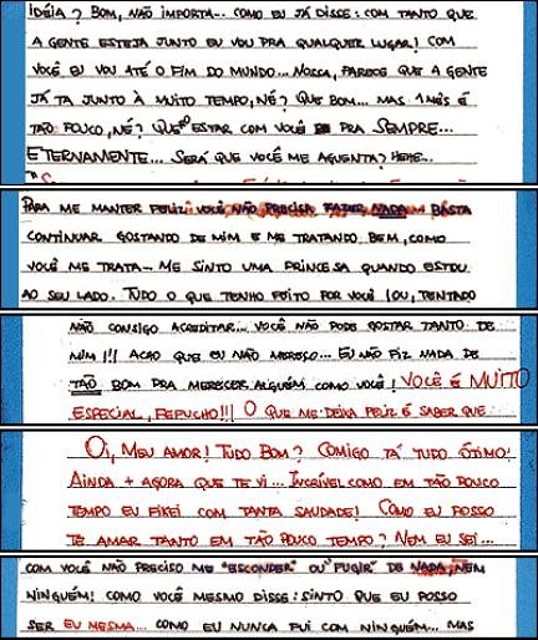 IDÉIA? BOM, NÃO IMPORTA... COMO EU JÁ DISSE: COM TANTO QUE
A GENTE ESTEJA JUNTO EU VOU PRA QUALQUER LUGAR! COM
VOCÊ EU VOU ATÉ O FIM DO MUNDO... NOSSA, PARECE QUE A GENTE
JÁ TA JUNTO À MUITO TEMPO, NÉ? QUE BOM... MAS 1 MÊS É
TÃO POUCO, NÉ? QUERO ESTAR COM VOCÊ PRA SEMPRE...
ETERNAMENTE... SERÁ QUE VOCÊ ME AGUENTA? HEHE...
PARA ME MANTER FELIZ: VOCÊ NÃO PRECISA FAZER NADA... BASTA
CONTINUAR GOSTANDO DE MIM E ME TRATANDO BEM, COMO
VOCÊ ME TRATA... ME SINTO UMA PRINCESA QUANDO ESTOU
AO SEU LADO. TUDO O QUE TENHO FEITO POR VOCÊ (OU, TENTADO
NÃO CONSIGO ACREDITAR... VOCÊ NÃO PODE GOSTAR TANTO DE
MIM!!! ACHO QUE EU NÃO MEREÇO... EU NÃO FIZ NADA DE
TÃO BOM PRA MERECER ALGUÉM COMO VOCÊ! VOCÊ É MUITO
ESPECIAL, FEPUCHO!!! O QUE ME DEIXA FELIZ É SABER QUE
OI, MEU AMOR! TUDO BOM? COMIGO TÁ TUDO ÓTIMO!
AINDA + AGORA QUE TE VI... INCRÍVEL COMO EM TÃO POUCO
TEMPO EU FIKEI COM TANTA SAUDADE! COMO EU POSSO
TE AMAR TANTO EM TÃO POUCO TEMPO? NEM EU SEI...
COM VOCÊ NÃO PRECISO ME "ESCONDER" OU "FUGIR" DE NADA, NEM
NINGUÉM! COMO VOCÊ MESMO DISSE: SINTO QUE EU POSSO
SER EU MESMA... COMO EU NUNCA FUI COM NINGUÉM... MAS